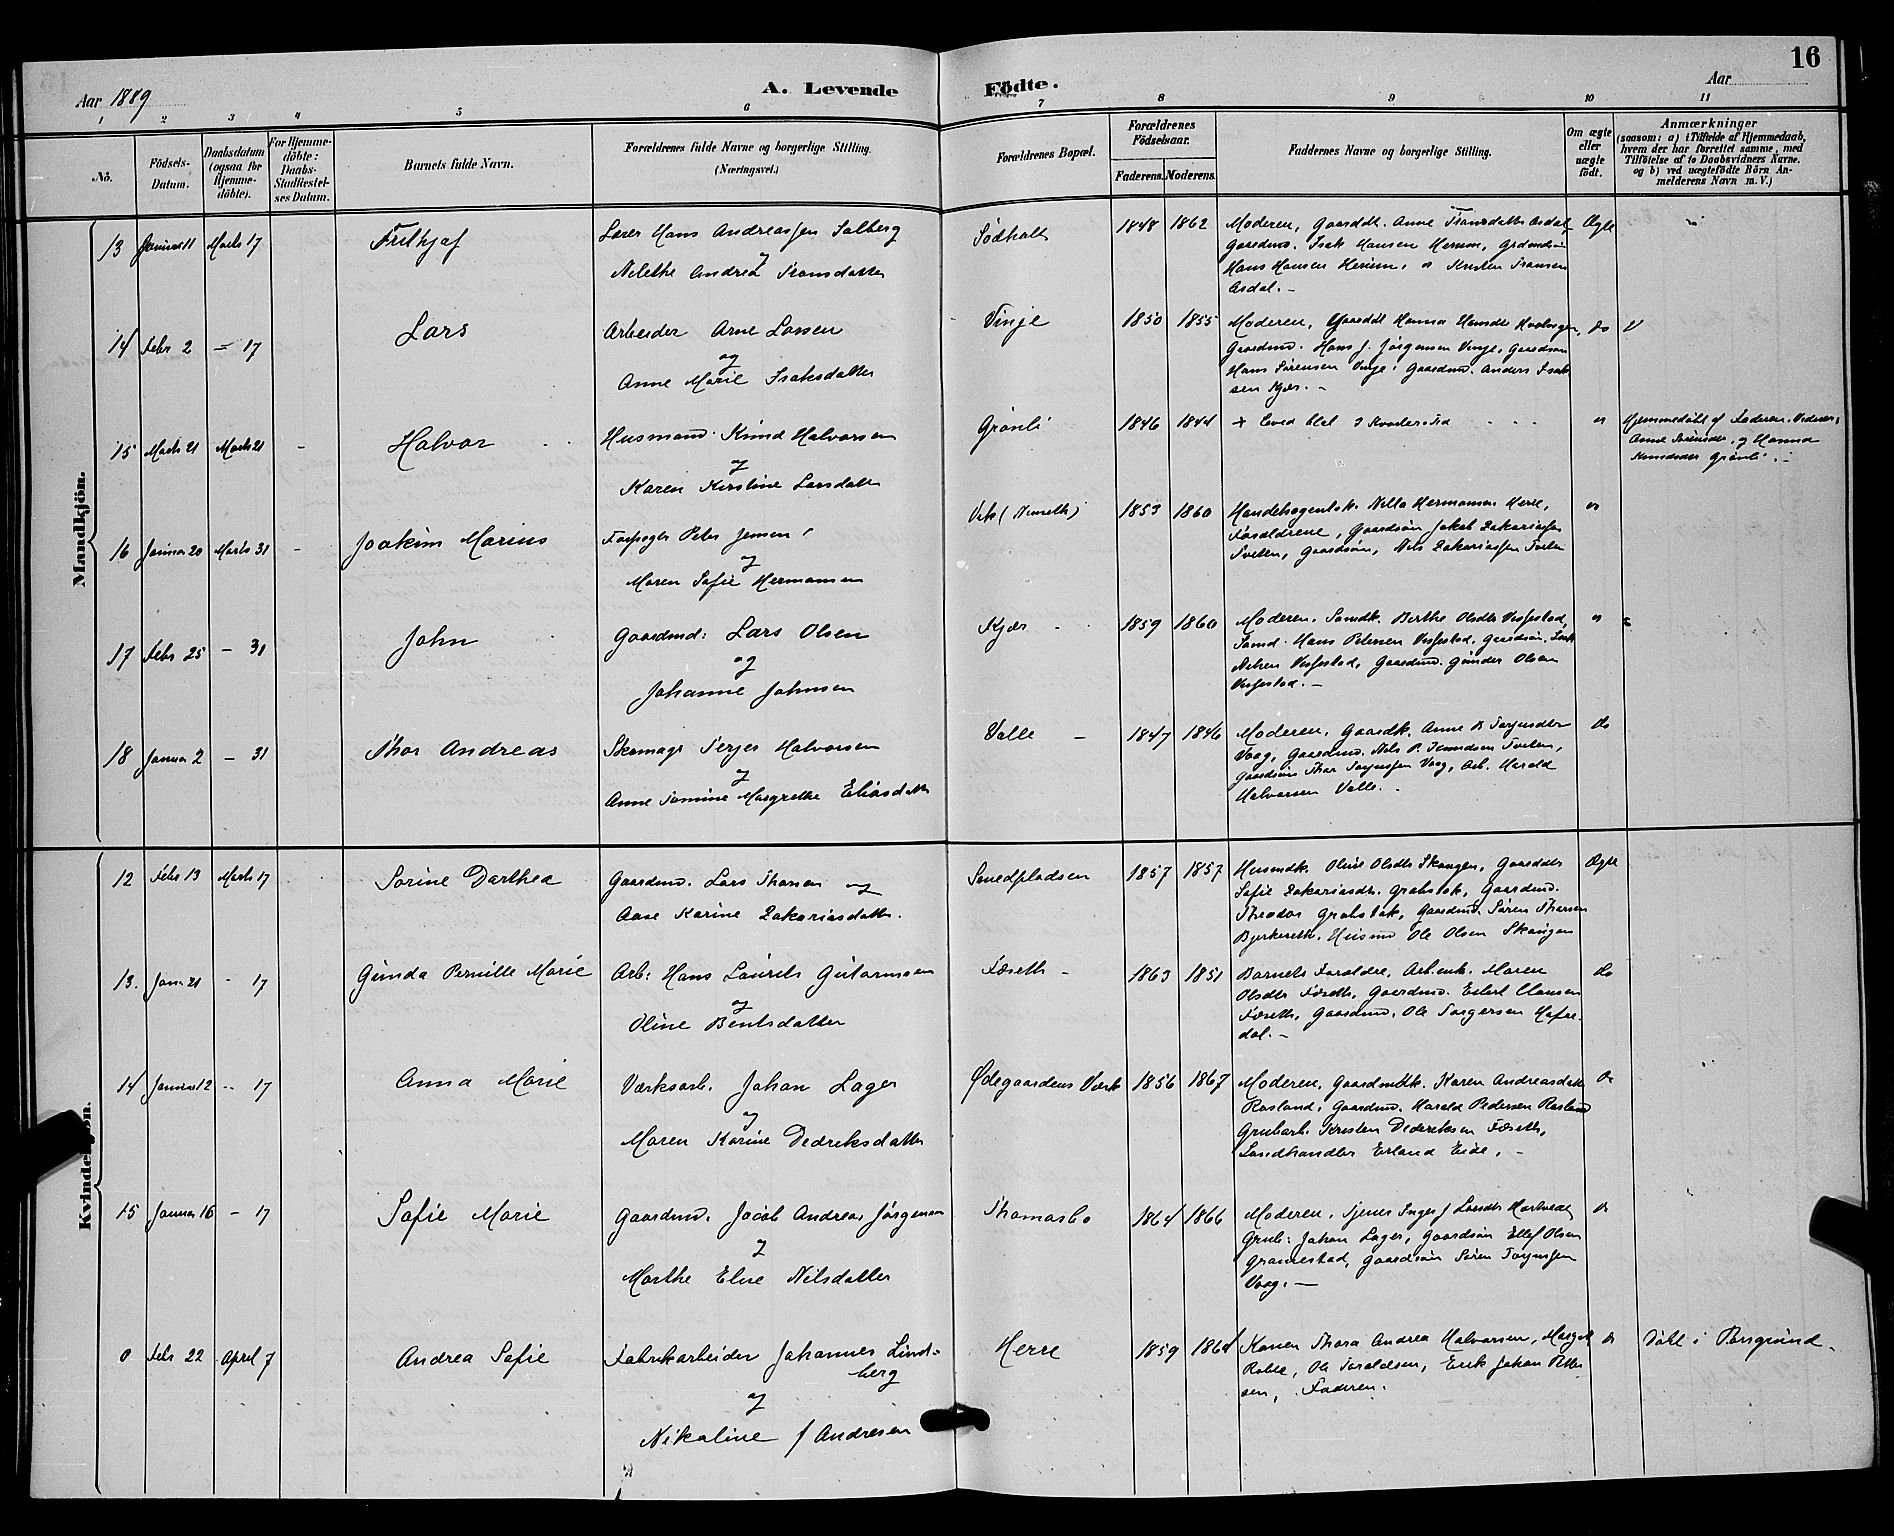 16
Aar 1889
A. Levende Födte.
Aar
1 2 3 4 5 6 7 8 9 10 11
No.
Födsels-Datum.
Daabsdatum (ogsaa for Hjemme-döbte).
For Hjemme-döbte: Daabs-Stadfæstel-ses Datum.
Barnets fulde Navn.
Forældrenes fulde Navne og borgerlige Stilling.
(Næringsvei.)
Forældrenes Bopæl.
Forældrenes Födselsaar.
Faderens. Moderens.
Faddernes Navne og borgerlige Stilling.
Om ægte eller uægte födt.
Anmærkninger
(saasom: a) i Tilfælde af Hjemmedaab, hvem der har forrettet samme, med Tilföielse af to Daabsvidners Navne, og b) ved uægtefödte Börn An-melderens Navn m. V.)
Mandkjön.
13 Januar 11 Marts 17 Frithjof
Lærer Hans Andreassen Solberg
og
Nilethe Andrea Fransdatter
1848 1862
Moderen, Gaardd. Anne Fransdatter Asdal
Gaardmd. Isak Hansen
Hans Hansen
Asdal. Ægte
14 Febr 2 – 17 Lars
Arbeider Arne Larsen
og
Anne Marie Isaksdatter
Vinje 1850 1855
Moderen, Gaardd Hanna
Gaardmd. Hans J. Jørgensen Vinje, Gaardsøn
Hans Sørensen Vinje, Gaardmd. Anders Isak
sen Kjær. do
15 Marts 21 Marts 21 – Halvor
Husmand Knud Halvorsen
og
Karen Kirstine Larsdatter
Grønli 1846 1844
Leved blot 3 Kvarters Tid
Hjemmedøbt af Faderen. Vidner:
Anne og Hanna
Knudsdtr Grønli.
16 Januar 20 Marts 31 – Joakim Marius
Peter Jensen
og
Maren Sofie Hermansen
1853 1860
Hermansen Herre,
Forældrene, Gaardsøn Jakob Zakariassen
Tveten, Gaardsøn, Nils Zakariassen Tveten
17 Febr 25 – 31 John
Gaardmd: Lars Olsen
og
Johanne Johnsen
Kjær 1859 1860
Moderen. Berthe Olsdtr
Hans Petersen Gaardsøn. Isak
Gaardmd. Gunder Olsen
18 Januar 2 – 31 Thor Andreas
Skomagr Terjer Halvorsen
og
Anne Tomine Margrethe Eliasdatter
Valle – 1847 1846
Moderen, Gaardk. Anne B Torjusdtr
Vaag, Gaardmd. Nils P. Knudsen Tveten,
Gaardsøn Thor Torjussen Vaag, Arb. Harald
Halvorsen Valle. do
Kvindekjön.
12 Febr 13 Marts 17 Sorine Dorthea
Gaardmd. Lars Thorsen og
Aase Karine Zakariasdatter.
Smedpladsen 1857 1857
Husmdk. Oline Olsdtr Skougen, Gaarddtr
Sofie Zakariasdtr. Grobstok, Gaardmd.
Theodor Grobstok, Gaardmd. Søren Thorsen
Bjerkeseth. Husmd Ole Olsen Skougen Ægte
13. Januar 21 – 17 Gunda Pernille Marie
Arb: Hans Laurits Gutormsen
og
Oline Bentsdatter
Fæseth 1863 1851
Barnets Forældre, Arb.enk. Maren
Olsdtr Fæseth, Gaardmd. Eilert Clausen
Fæseth, Gaardmd. Ole Torgersen Hafre-
dal. do
14 Januar 12 – 17 Anna Marie
Værksarb. Johan Lager
og
Maren Karine Dedreksdatter
Ødegaardens Værk 1856 1867
Moderen, Gaardmdk. Karen Andreasdatter
Rosland, Gaardmd. Harald Pedersen Rosland
Grubarb. Kristen Dedreksen Fæseth,
Landhandler Erland Eide. do
15 Januar 16 – 17 Sofie Marie
Gaardmd. Jacob Andreas Jørgensen
og
Marthe Elise Nilsdatter
Thomasbo 1864 1866
Moderen. Tjener Inger J Larsdtr
Grub: Johan Lager, Gaardsøn Ellef Olsen
Gromestad, Gaardsøn Søren Torjussen
Vaag. do
0 Febr 22 April 7 Andrea Sofie
Fabrikarbeider Johannes Lind-
berg
og
Nikoline J Andresen
Herre 1859 1864
Konen Thora Andrea Halvorsen,
Ole Toroldsen, Erik Johan Petter
sen, Faderen. do
Døbt i Porsgrund.